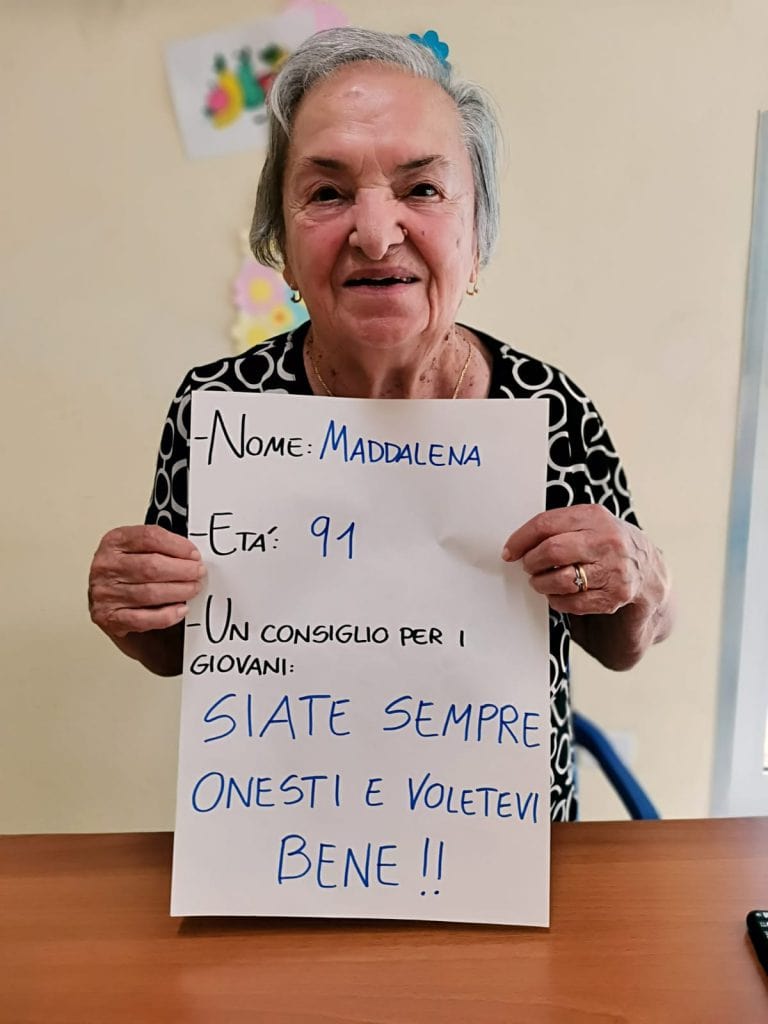 -NOME: MADDALENA
-ETÁ: 91
-UN CONSIGLIO PER I
GIOVANI:
SIATE SEMPRE
ONESTI E VOLETEVI
BENE!!